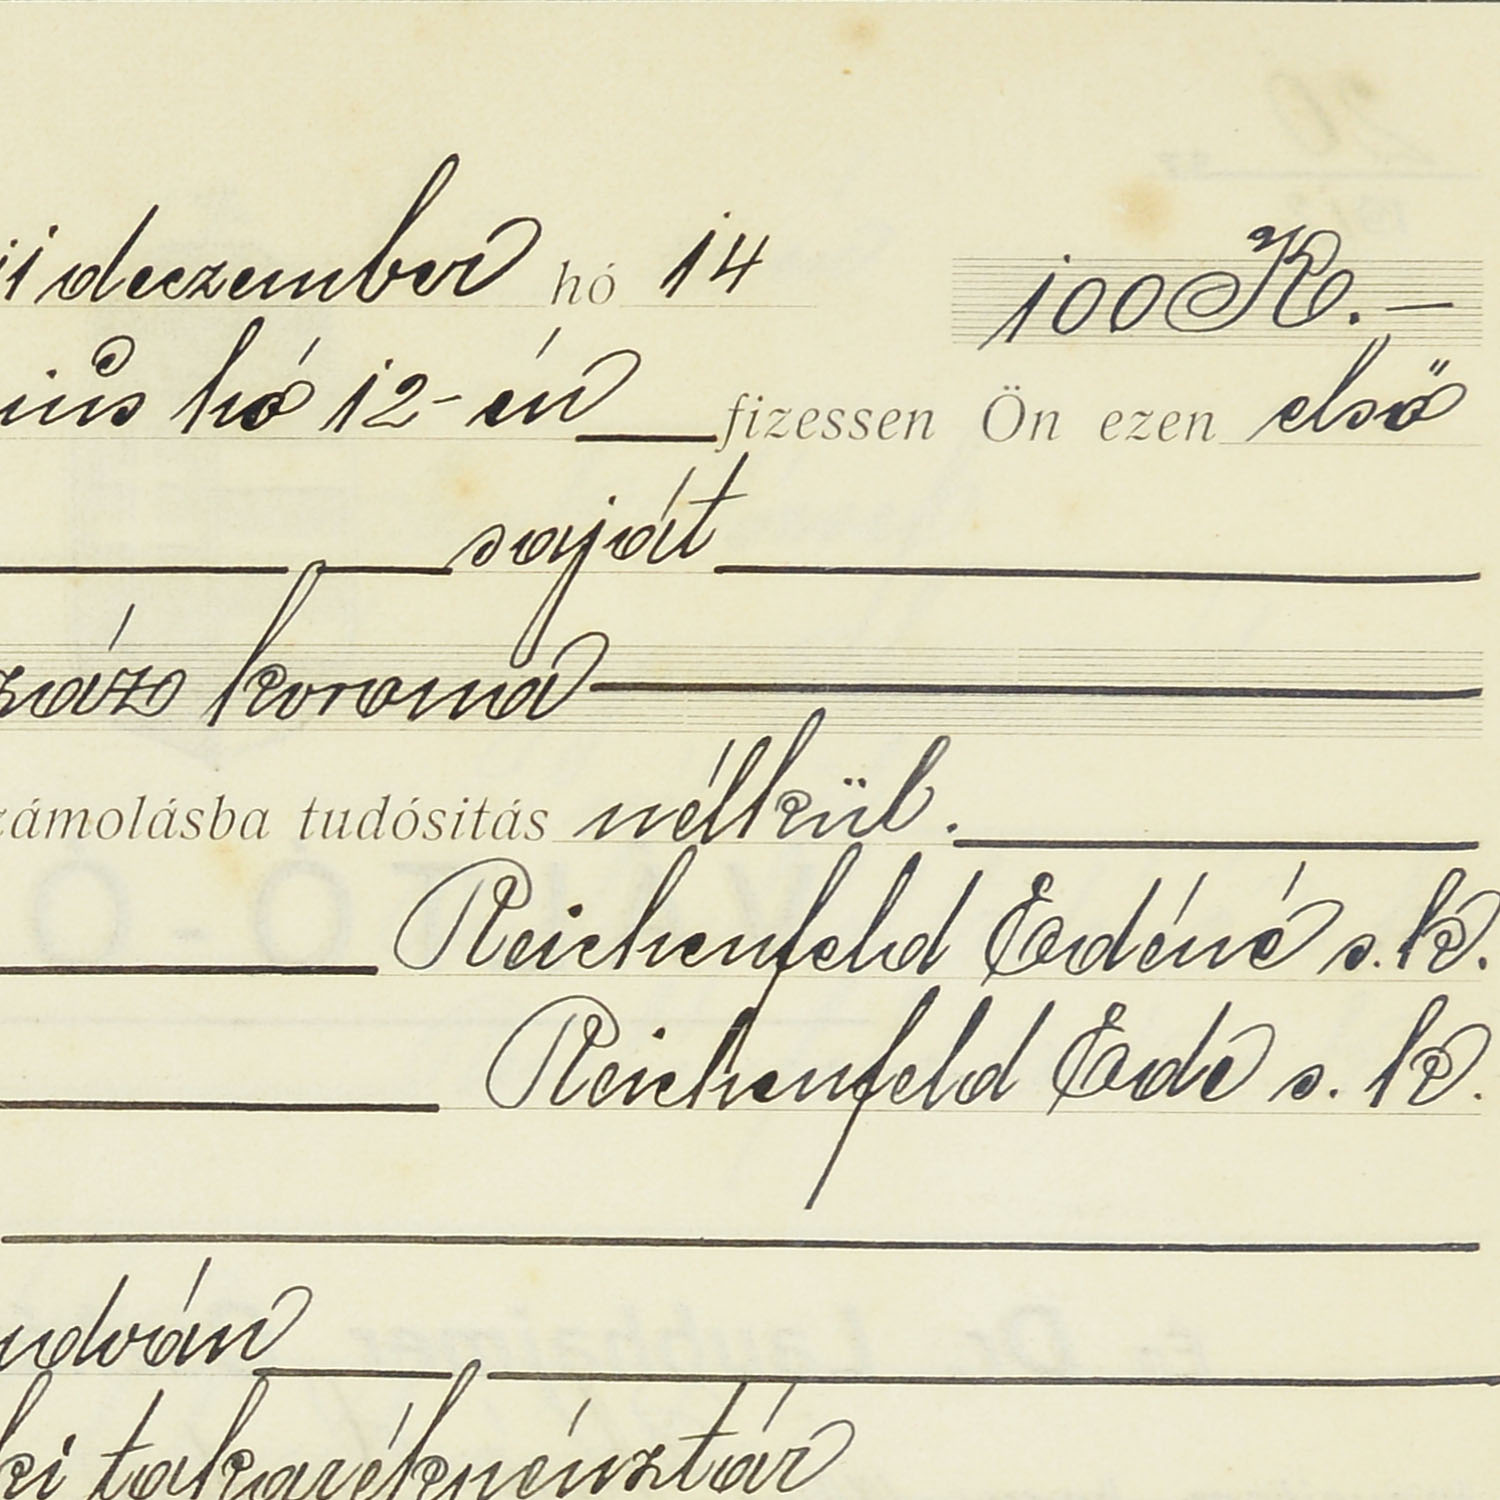 deczember hó 14 100 K. —
hó 12-én fizessen Ön ezen első
saját
száz korona
számolásba tudósitás nélkül.
Reichenfeld Edéné s. k.
Reichenfeld Ede s. k.
udván
ki takarékpénztár